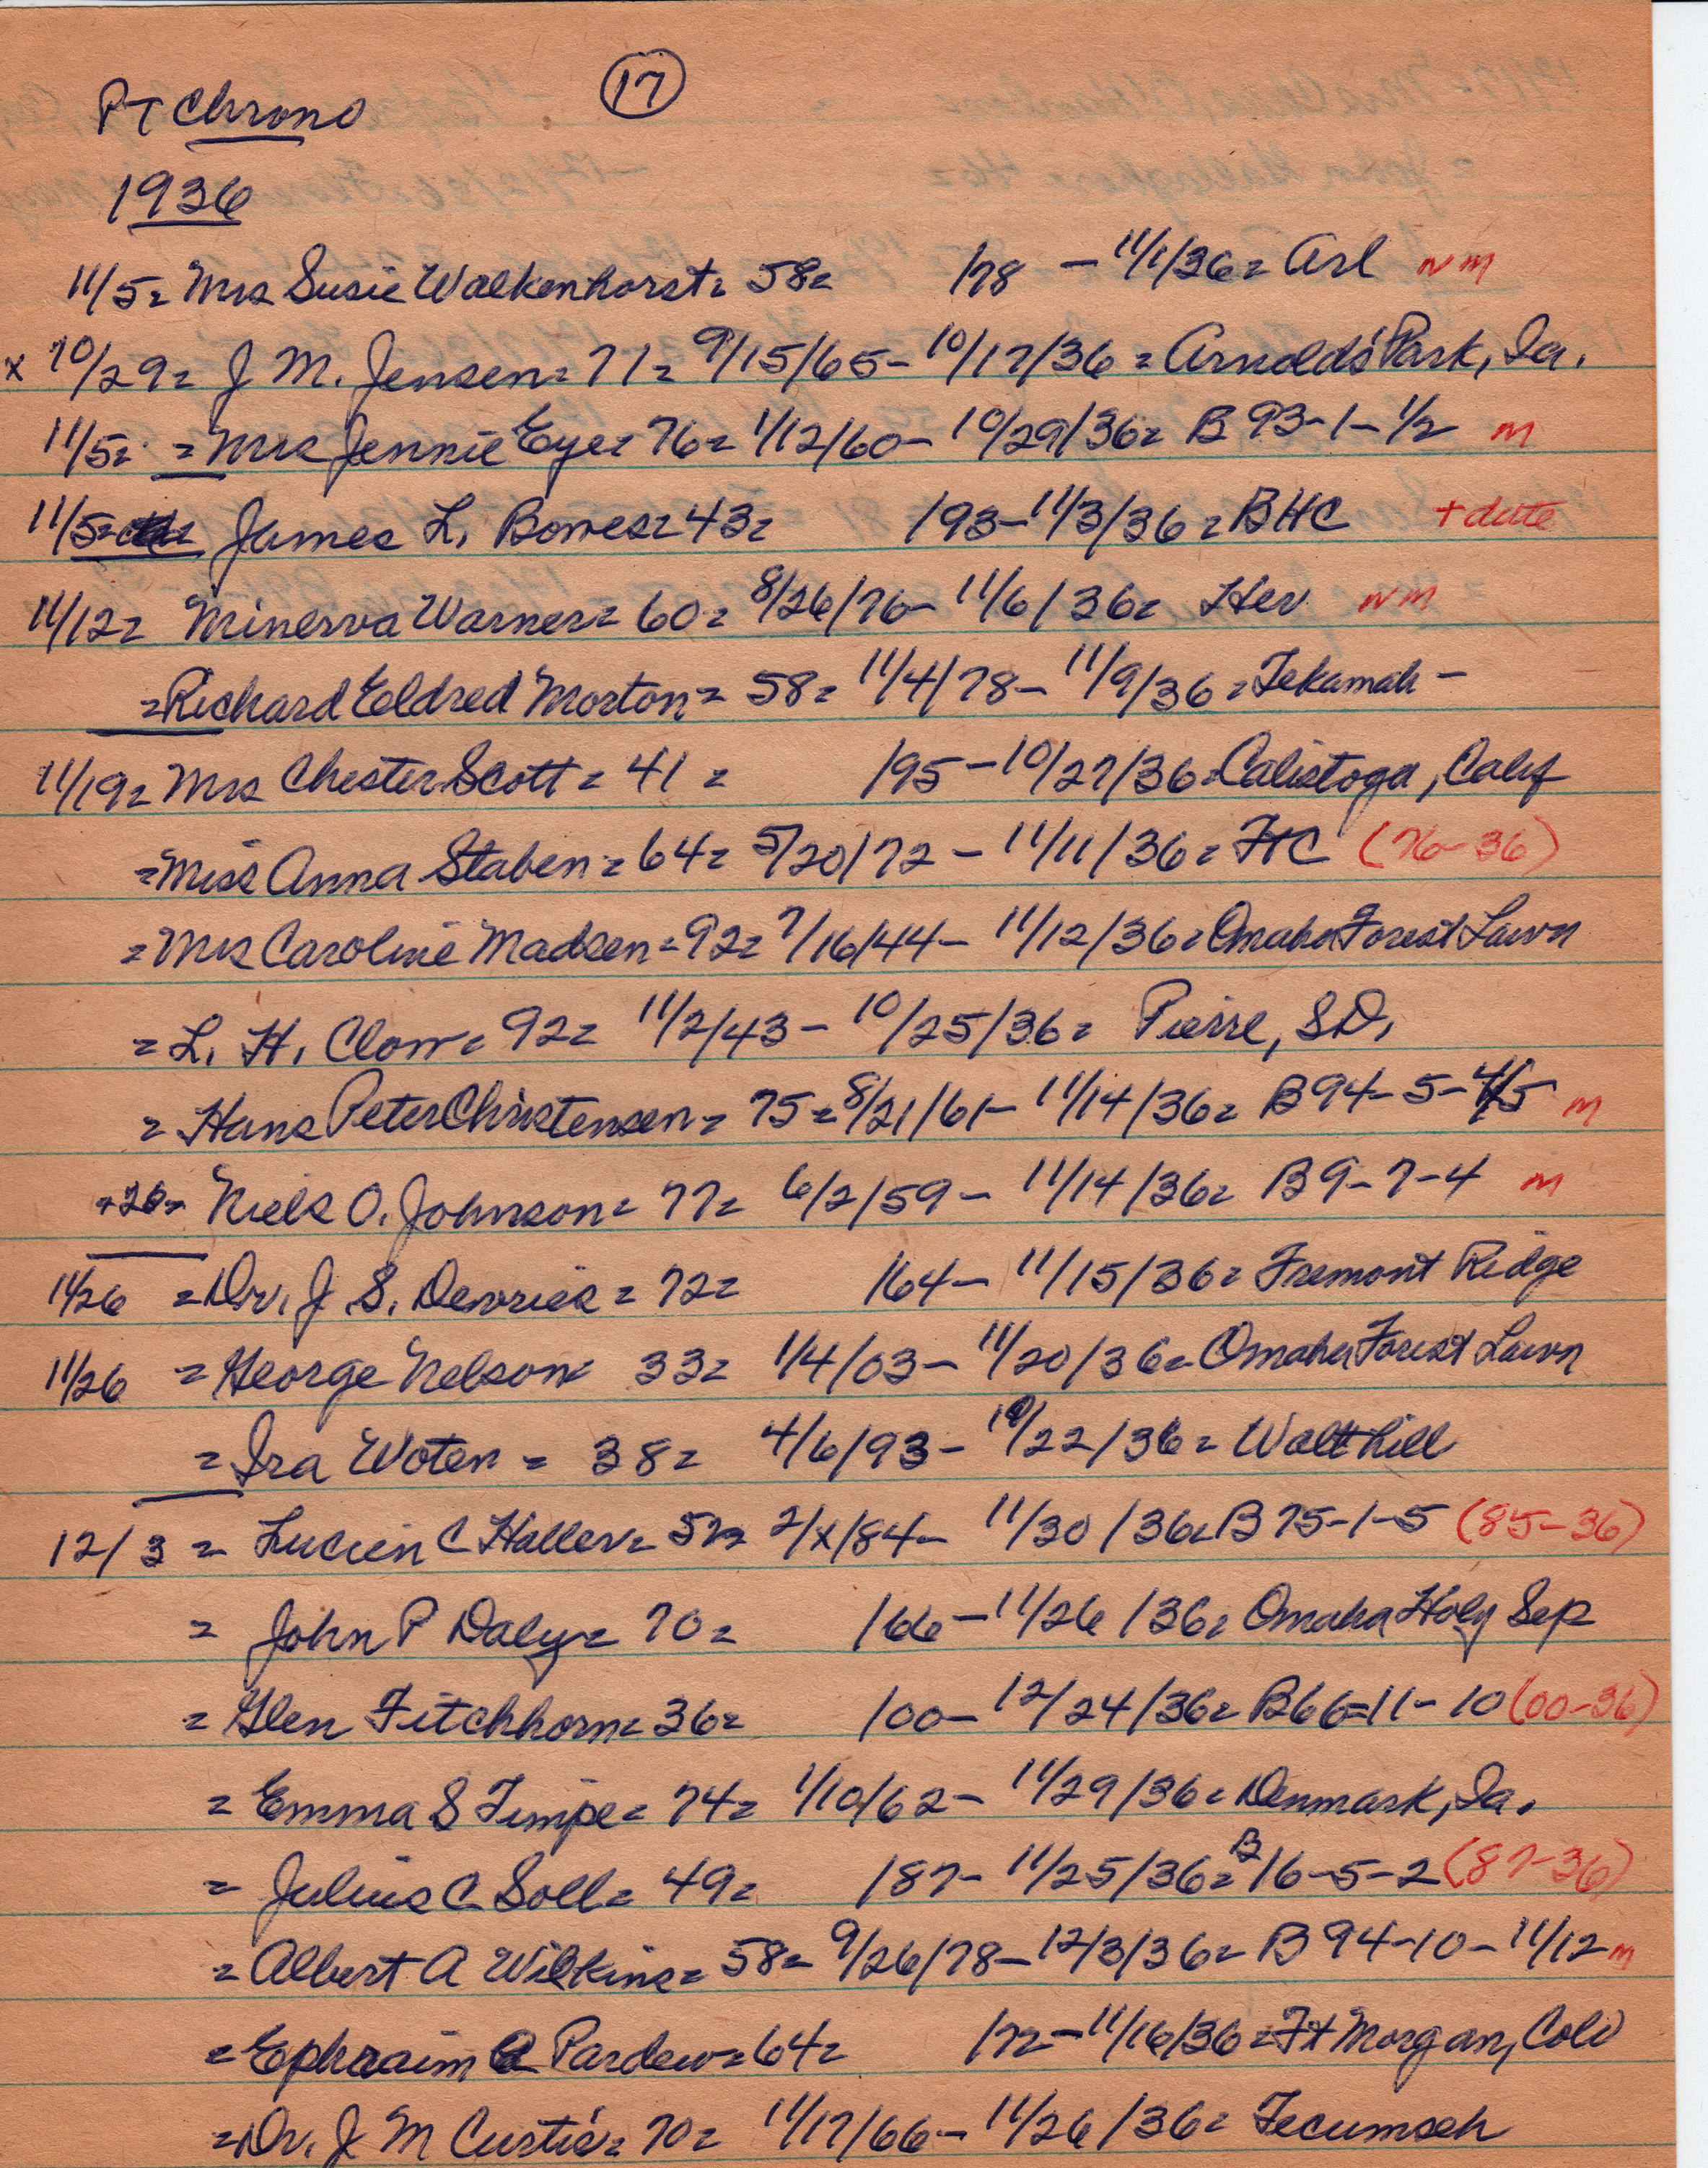 17
PT Chrono
1936
11/5= Mrs Susie Walkenhorst= 58= /78 - 11/1/36= Arl NM
x 10/29= J M. Jensen= 71= 9/15/65- 10/17/36= Arnolds Park, Ia.
11/5= = Mrs Jennie Eye= 76= 1/12/60- 10/29/36= B 93-1-1/2 M
11/5= James L. Bowes= 43= /93- 11/3/36= BHC + date
11/12= Minerva Warner= 60= 8/26/76- 11/6/36= Her NM
=Richard Eldred Morton= 58= 11/4/78- 11/9/36= Tekamah -
11/19= Mrs Chester Scott= 41= /95 - 10/27/36= Calistoga, Calif
=Miss Anna Staben= 64= 5/20/72 - 11/11/36= FtC (76-36)
=Mrs Caroline Madsen= 92= 7/16/44- 11/12/36= Omaha Forest Lawn
= L. H. Clow= 92= 11/2/43- 10/25/36= Pierre, SD.
= Hans Peter Christensen= 75= 8/21/61- 11/14/36= B 94-5-4/5 M
+26= Niels O. Johnson= 77= 6/2/59- 11/14/36= B 9-7-4 M
11/26 =Dr. J. S. Devries= 72= /64- 11/15/36= Fremont Ridge
11/26 =George Nelson= 33= 1/4/03- 11/20/36= Omaha Forest Lawn
=Ira Woten= 38= 4/6/93- 10/22/36= Walthill
12/3 = Lucien C Haller= 52= 2/x/84- 11/30/36= B 75-1-5 (85-36)
= John P Daly= 70= /66- 11/26/36= Omaha Holy Sep
= Glen Fitchhorn= 36= /00- 12/24/36= B66=11-10 (00-36)
= Emma S Timpe= 74= 1/10/62- 11/29/36= Denmark, Ia.
= Julius C Soll= 49= /87- 11/25/36= B 16-5-2 (87-36)
= Albert A Wilkins= 58= 9/26/78- 12/3/36= B 94-10-11/12 M
=Ephraim A Pardew= 64= /72- 11/16/36= Ft Morgan, Colo
=Dr. J M Curtis= 70= 11/17/66- 11/26/36= Tecumseh